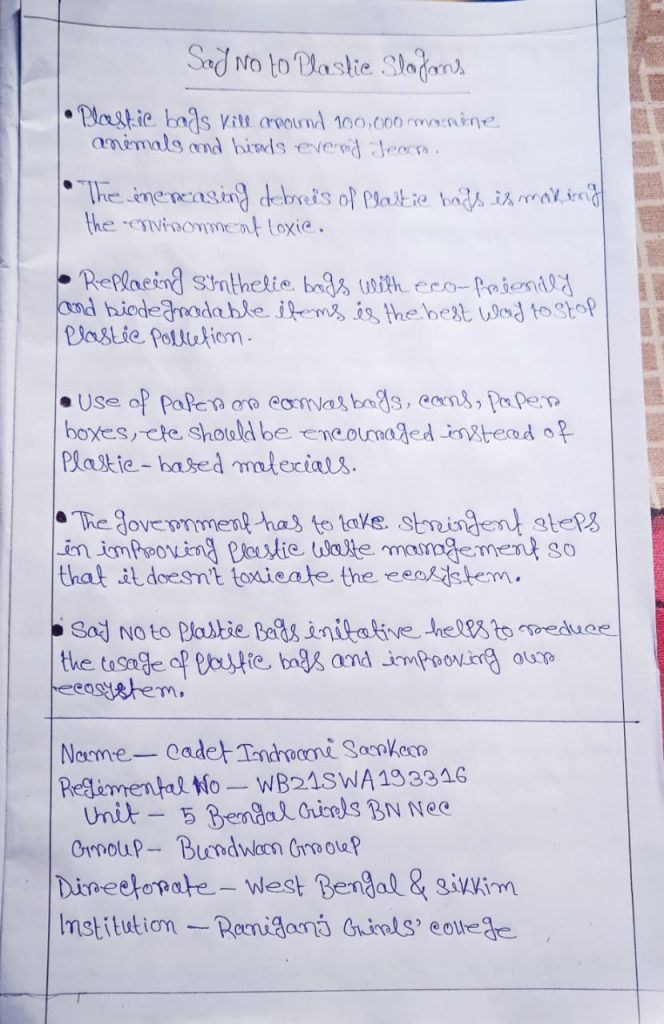 Say No to Plastic Slogans
• Plastic bags kill around 100,000 marine
animals and birds every year.
• The increasing debreis of Plastic bags is making
the environment toxic.
• Replacing synthetic bags with eco-friendly
and biodegradable items is the best way to stop
Plastic Pollution.
• Use of Paper or canvas bags, cans, Paper
boxes, etc should be encouraged instead of
Plastic-based materials.
• The government has to take stringent steps
in improving Plastic waste management so
that it doesn't toxicate the ecosystem.
• Say No to Plastic Bags initative helps to reduce
the usage of Plastic bags and improving our
ecosystem.
Name — Cadet Indrani Sarkar
Regimental No — WB21SWA193316
Unit — 5 Bengal Girls BN NCC
Group — Burdwan Group
Directorate — West Bengal & Sikkim
Institution — Raniganj Girls' College